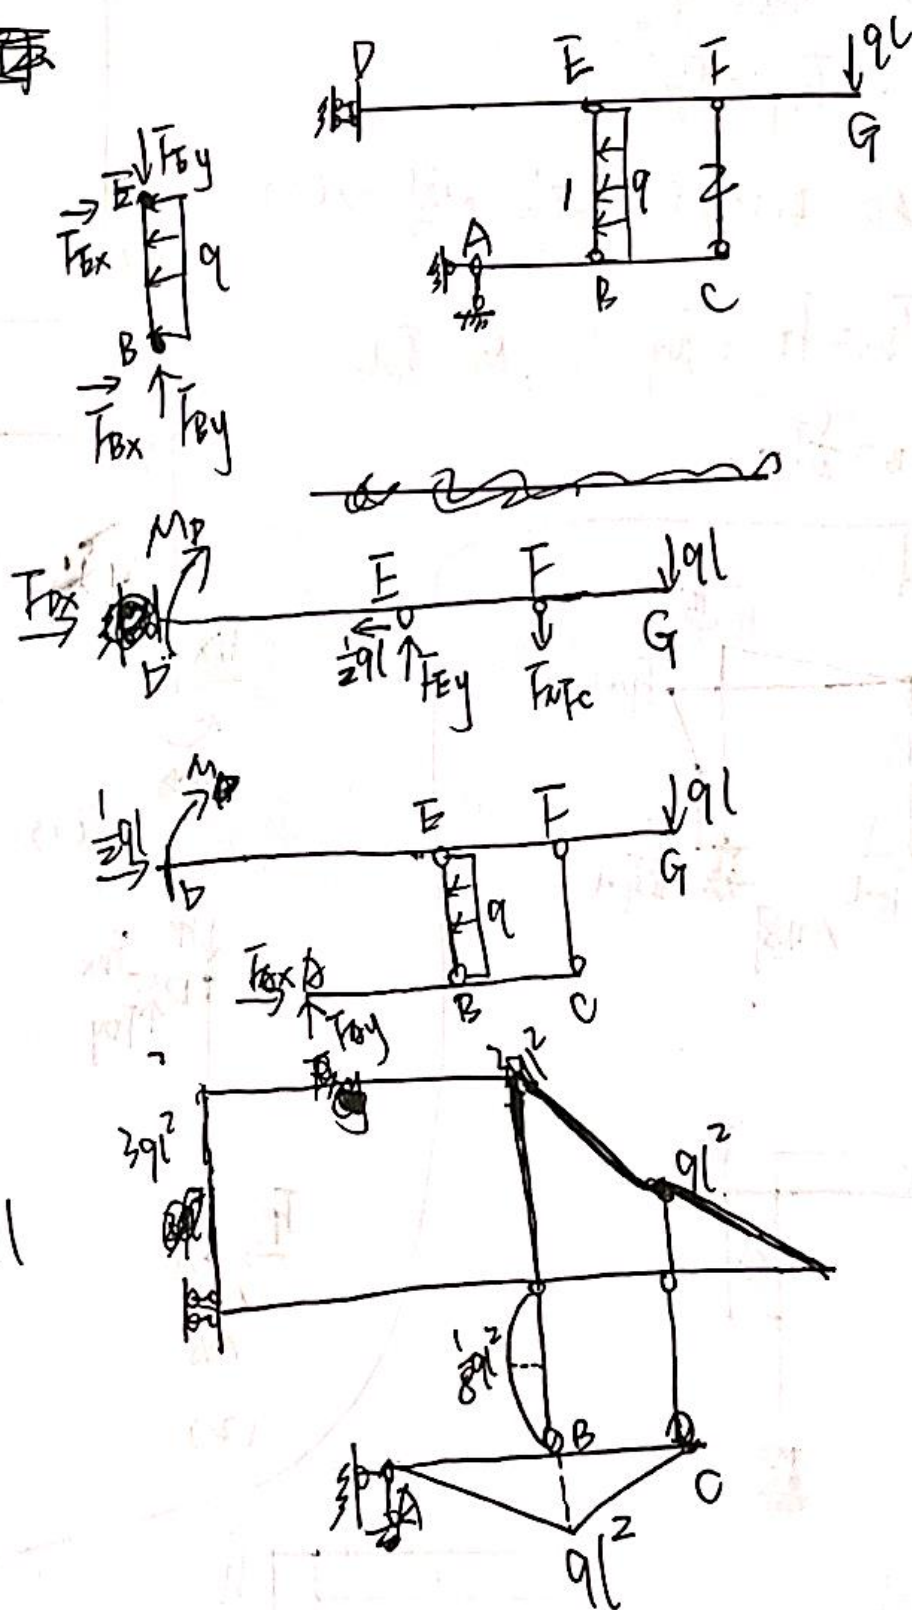 D E F ql
G
1 q 2
A
B C
F_Ey
E
F_Ex q
B
F_Bx F_By
M_D
F_Dx E F ql
D ½ql F_Ey F_NFC G
M
½ql E F ql
D G
q
F_Ax A
F_Ay B C
3ql² ql²
⅛ql²
B
A C
ql²